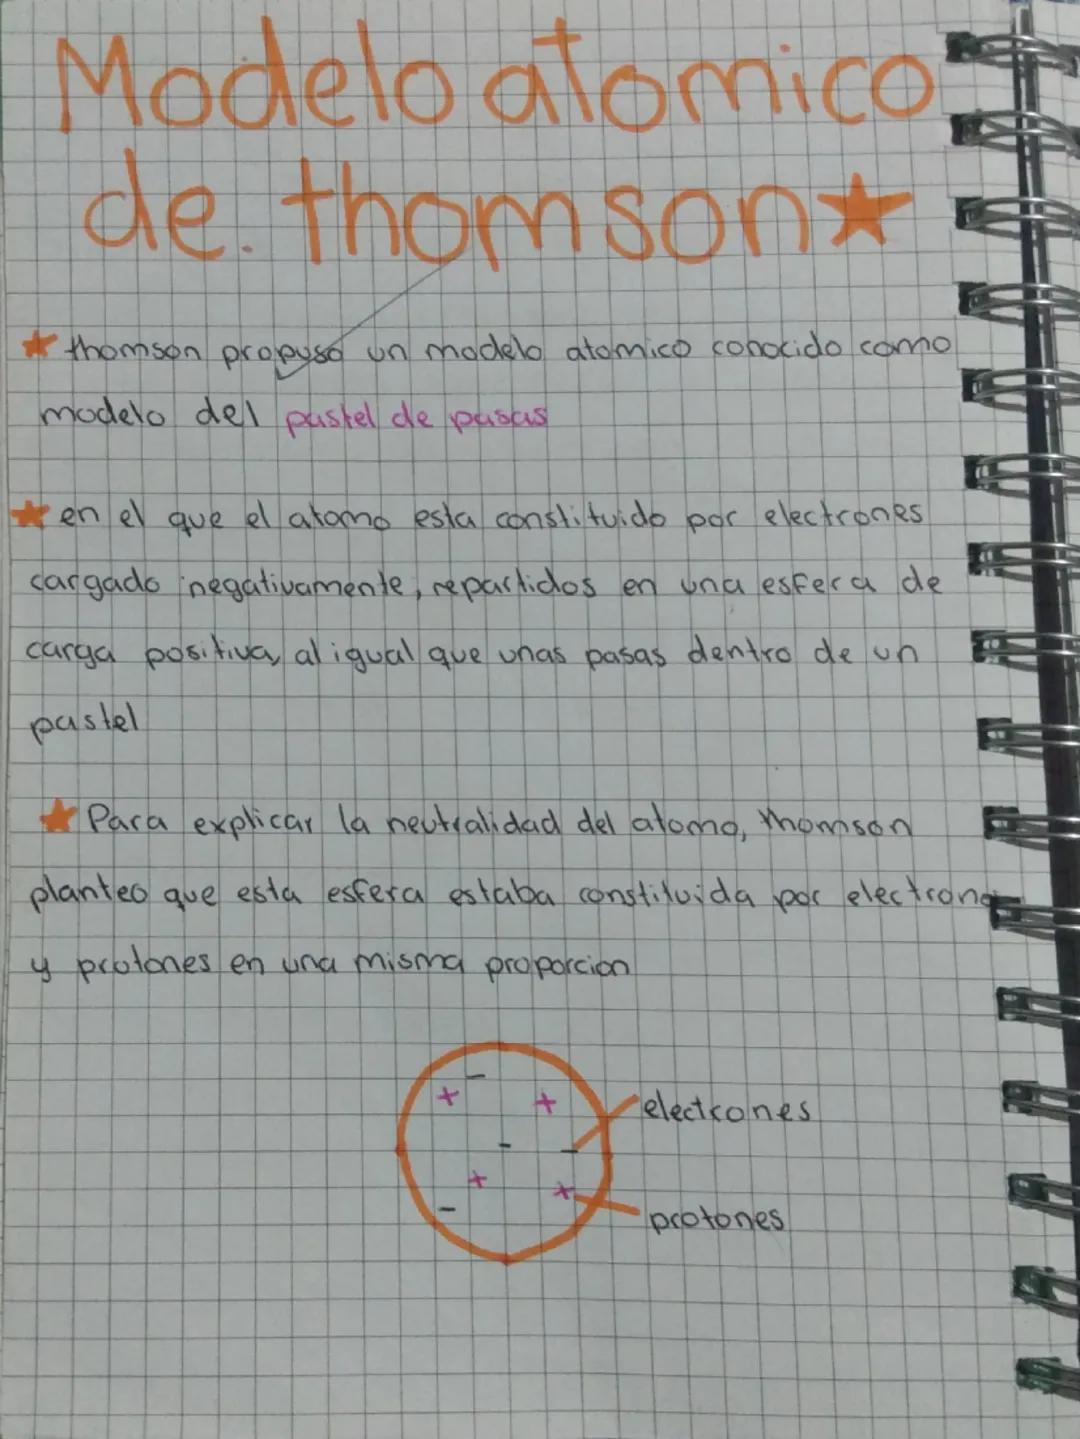 Modelo atomico
de. thomson
thomson propuso un modelo atomico conocido como
modelo del pastel de pasas
en el que el atomo esta constituido por electrones
cargado negativamente, repartidos en una esfera de
carga positiva, al igual que unas pasas dentro de un
pastel
Para explicar la neutralidad del atomo, thomson
planteo que esta esfera estaba constituida por electrone
y protones en una misma proporcion
+ - +
electrones
- -
+ +
-
protones